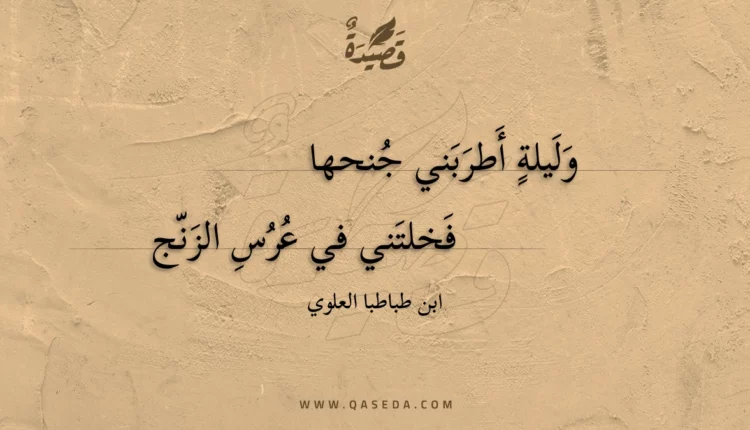 قَصِيْدَةٌ
وَلَيلةٍ أَطرَبَني جُنحها
فَخلتَني في عُرُسِ الزَنّج
ابن طباطبا العلوي
WWW.QASEDA.COM